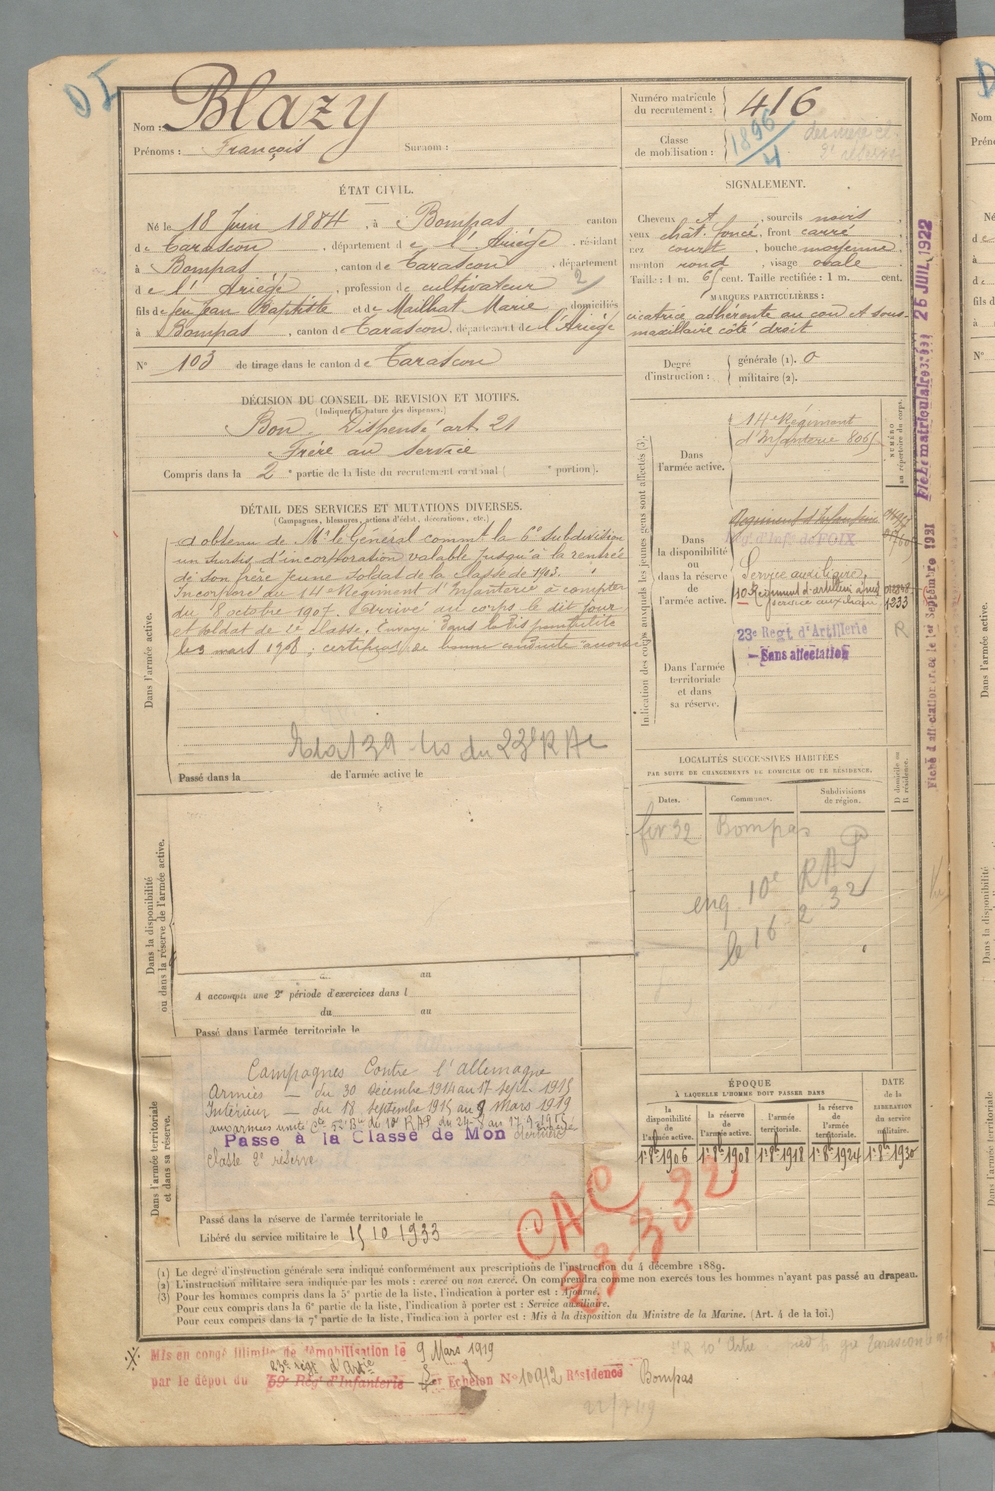 DI
Nom : Blazy
Prénoms : François Surnom :
Numéro matricule du recrutement : 416
Classe de mobilisation : 1896
4
dernière cl.
2e réserve
ÉTAT CIVIL.
Né le 18 Juin 1884, à Bompas canton
de Tarascon, département de l'Ariège, résidant
à Bompas, canton de Tarascon, département
de l'Ariège, profession de cultivateur 2/
fils de feu Jean Baptiste et de Mailhat Marie, domiciliés
à Bompas, canton de Tarascon, département de l'Ariège
N° 103 de tirage dans le canton de Tarascon
SIGNALEMENT.
Cheveux et, sourcils noirs,
yeux chât. foncé, front carré,
nez court, bouche moyenne,
menton rond, visage ovale
Taille : 1 m. 65 cent. Taille rectifiée : 1 m. cent.
MARQUES PARTICULIÈRES :
cicatrice adhérente au cou et sous-
maxillaire côté droit
Degré d'instruction : générale (1). 0
militaire (2).
DÉCISION DU CONSEIL DE REVISION ET MOTIFS.
(Indiquer la nature des dispenses.)
Bon. Dispensé art 21
Frère au service
Compris dans la 2e partie de la liste du recrutement cantonal ( e portion).
DÉTAIL DES SERVICES ET MUTATIONS DIVERSES.
(Campagnes, blessures, actions d'éclat, décorations, etc.)
a obtenu de Mr le Général commt la 6e subdivision
un sursis d'incorporation valable jusqu'à la rentrée
de son frère jeune soldat de la classe de 1903.
Incorporé du 14e Régiment d'Infanterie à compter
du 8 octobre 1907. Arrivé au corps le dit jour
et soldat de 2e classe. Envoyé dans la disponibilité
le 3 mars 1908, certificat de bonne conduite accordé
Dans l'armée active.
du 23e RA
Passé dans la de l'armée active le
Indication des corps auxquels les jeunes gens sont affectés (3).
NUMÉRO au répertoire du corps.
Dans l'armée active.
14e Régiment
d'Infanterie 8065
Dans la disponibilité ou dans la réserve de l'armée active.
Régiment d'Infanterie
Rég. d'Inf. de FOIX
Service auxiliaire
10 Régiment d'artillerie à pied
service auxiliaire
1233
R
23e Régt d'Artillerie
Sans affectation
Dans l'armée territoriale et dans sa réserve.
Fiche matriculaire créée 26 JUIL 1922
Fiche d'affectation créée le 1er Septembre 1931
LOCALITÉS SUCCESSIVES HABITÉES
PAR SUITE DE CHANGEMENTS DE DOMICILE OU DE RÉSIDENCE.
Dates. Communes. Subdivisions de région. D domicile ou R résidence.
fév 32 Bompas
eng. 10e RAP
le 16 2 32
Dans la disponibilité ou dans la réserve de l'armée active.
au
A accompli une 2e période d'exercices dans l
du au
Passé dans l'armée territoriale le
Dans l'armée territoriale et dans sa réserve.
Campagnes Contre l'allemagne
Armées — du 30 décembre 1914 au 17 sept. 1915
Intérieur — du 18 septembre 1915 au 9 Mars 1919
aux armées unité Cie 52e Bie du 10e RAP du 24-8 au 17.9.1915
Passé à la Classe de Mon dernière
classe 2e réserve
Passé dans la réserve de l'armée territoriale le
Libéré du service militaire le 15 10 1933
ÉPOQUE
À LAQUELLE L'HOMME DOIT PASSER DANS
DATE de la LIBÉRATION du service militaire.
la disponibilité de l'armée active. la réserve de l'armée active. l'armée territoriale. la réserve de l'armée territoriale.
1er 8bre 1906 1er 8bre 1908 1er 8bre 1918 1er 8bre 1924 1er 8bre 1930
CAC
23-3 32
(1) Le degré d'instruction générale sera indiqué conformément aux prescriptions de l'instruction du 4 décembre 1889.
(2) L'instruction militaire sera indiquée par les mots : exercé ou non exercé. On comprendra comme non exercés tous les hommes n'ayant pas passé au drapeau.
(3) Pour les hommes compris dans la 5e partie de la liste, l'indication à porter est : Ajourné.
Pour ceux compris dans la 6e partie de la liste, l'indication à porter est : Service auxiliaire.
Pour ceux compris dans la 7e partie de la liste, l'indication à porter est : Mis à la disposition du Ministre de la Marine. (Art. 4 de la loi.)
Mis en congé illimité de démobilisation le 9 Mars 1919
23e régt d'Artie
par le dépôt du 59e Rég' d'Infanterie Echelon N° 10912 Résidence Bompas
22/7/19